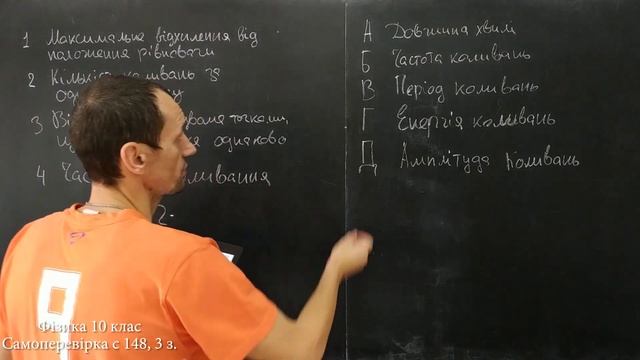 1 Максимальне відхилення від
положення рівноваги
2 Кількість коливань за
3
однаково
4 коливання
А Довжина хвилі
Б Частота коливань
В Період коливань
Г Енергія коливань
Д Амплітуда коливань
9
Фізика 10 клас
Самоперевірка с 148, 3 з.